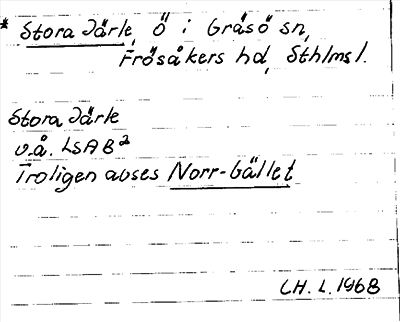 * Stora Järle, ö i Gräsö sn,
Frösåkers hd, Sthlms l.
Stora Järle
v.å. LSAB²
Troligen avses Norr-Gället
CH. L. 1968